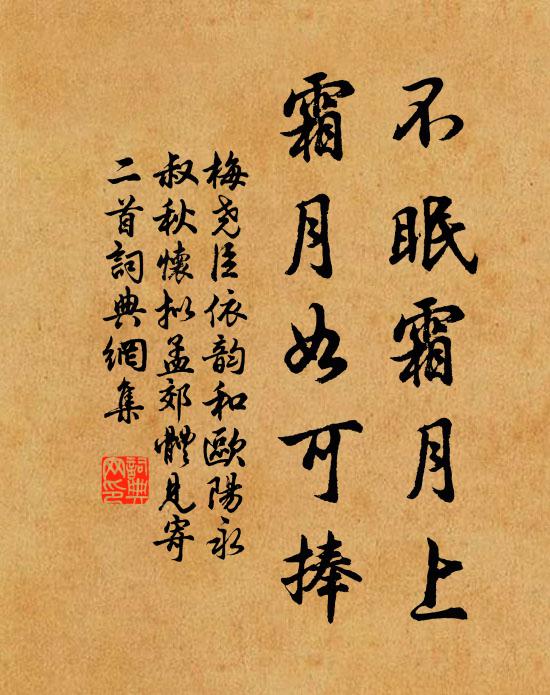 不眠霜月上
霜月如可捧
梅尧臣依韵和歐陽永
叔秋懷拟孟郊體見寄
二首詞典網集
詞典
网印